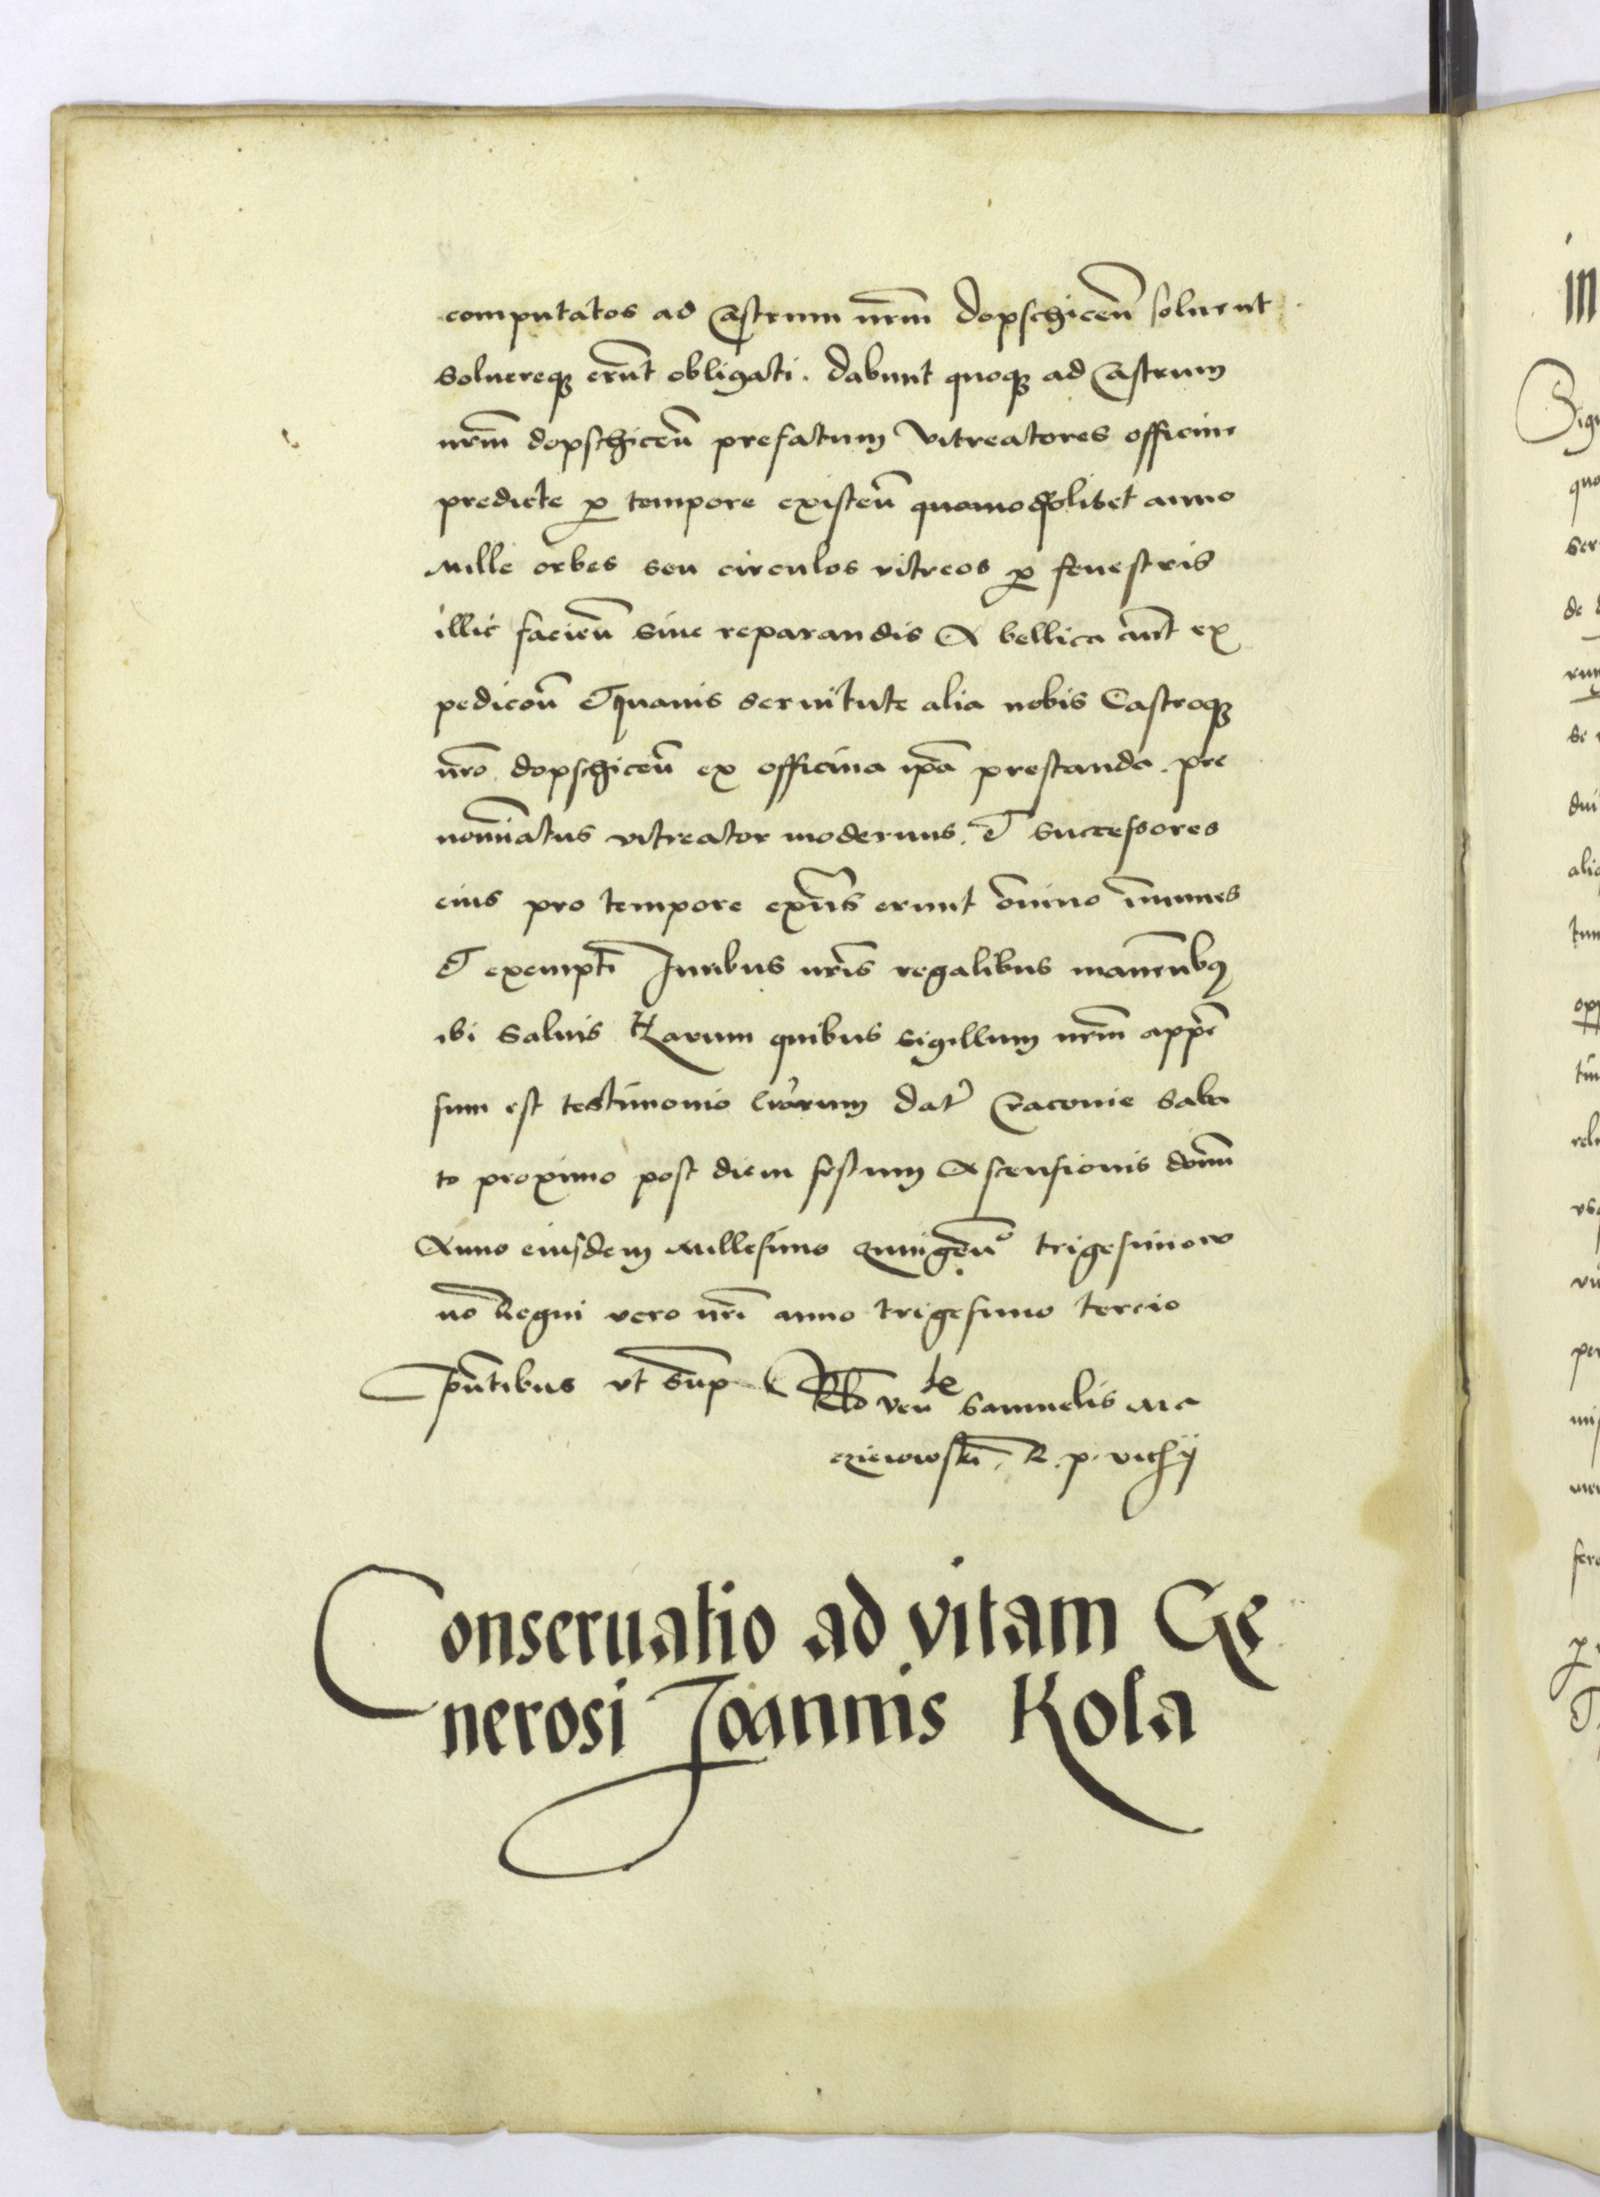 computatos ad Castrum nrm̄ dopschiceñ soluent
soluereq̨ erūt obligati. dabunt quoq̨ ad Castrum
nrm̄ dopschiceñ prefatum vitreatores officine
predicte p tempore existeñ quomodolibet anno
Mille orbes seu circulos vitreos p fenestris
illic facieñ siue reparandis A bellica aūt ex
pedicoñ Et quauis seruitute alia nobis Castroq̨
nr̄o dopschiceñ ex officina ip̄a prestanda. pre
nomīatus vitreator modernus. Et successores
eius pro tempore exñs erunt ōnino īmunes
Et exempti Iuribus nr̄is regalibus maneñbꝫ
ibi saluis Harum quibus sigillum nrm̄ appē
sum est testimonio lr̄arum dat̄ Cracouie Saba
to proximo post diem festum Ascensionis domī
Anno eiusdem Millesimo quingeñº trigesimono
no Regni vero nr̄i anno trigesimo tercio
Pn̄tibus vt sup̄ Rlō veñ Samuelis Ma
cziewowski. R. p. vicſꝫ
Conseruatio ad vitam Ge
nerosi Joannis Kola